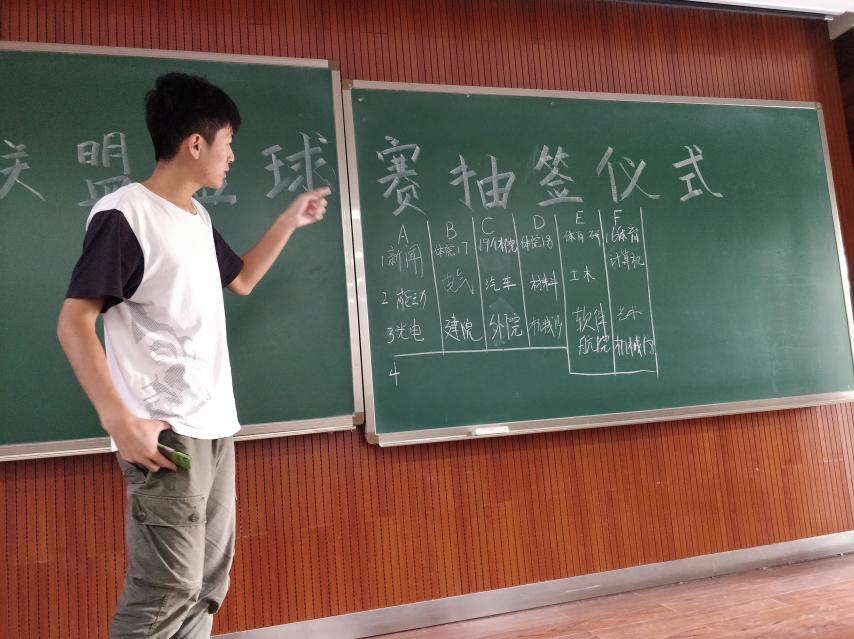 联盟篮球赛抽签仪式
A B C D E F
1 新闻 体院17 19体院 体院18 体育研 16体育
计算机
2 能动 电气 汽车 材料 土木
3 光电 建院 外院 软件 艺术
航院 机械18
4